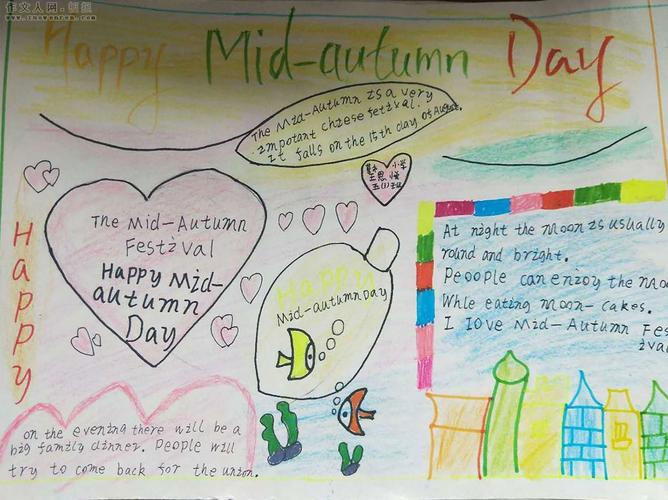 作文人网
www.zuowenren.com
Happy Mid-autumn Day
The Mid-Autumn Is a very
impotant chiese fetival.
It falls on the 15th day of August.
小学
王思
五(1)班
The Mid-Autumn
Festival
Happy Mid-
autumn
Day
Happy
Happy
Mid-autumn Day
At night the moon is usually
round and bright.
Peoople can enjoy the moo
Whle eating moon-cakes.
I love Mid-Autumn Fes
ival
on the evening there will be a
big family dinner. People will
try to come back for the union.